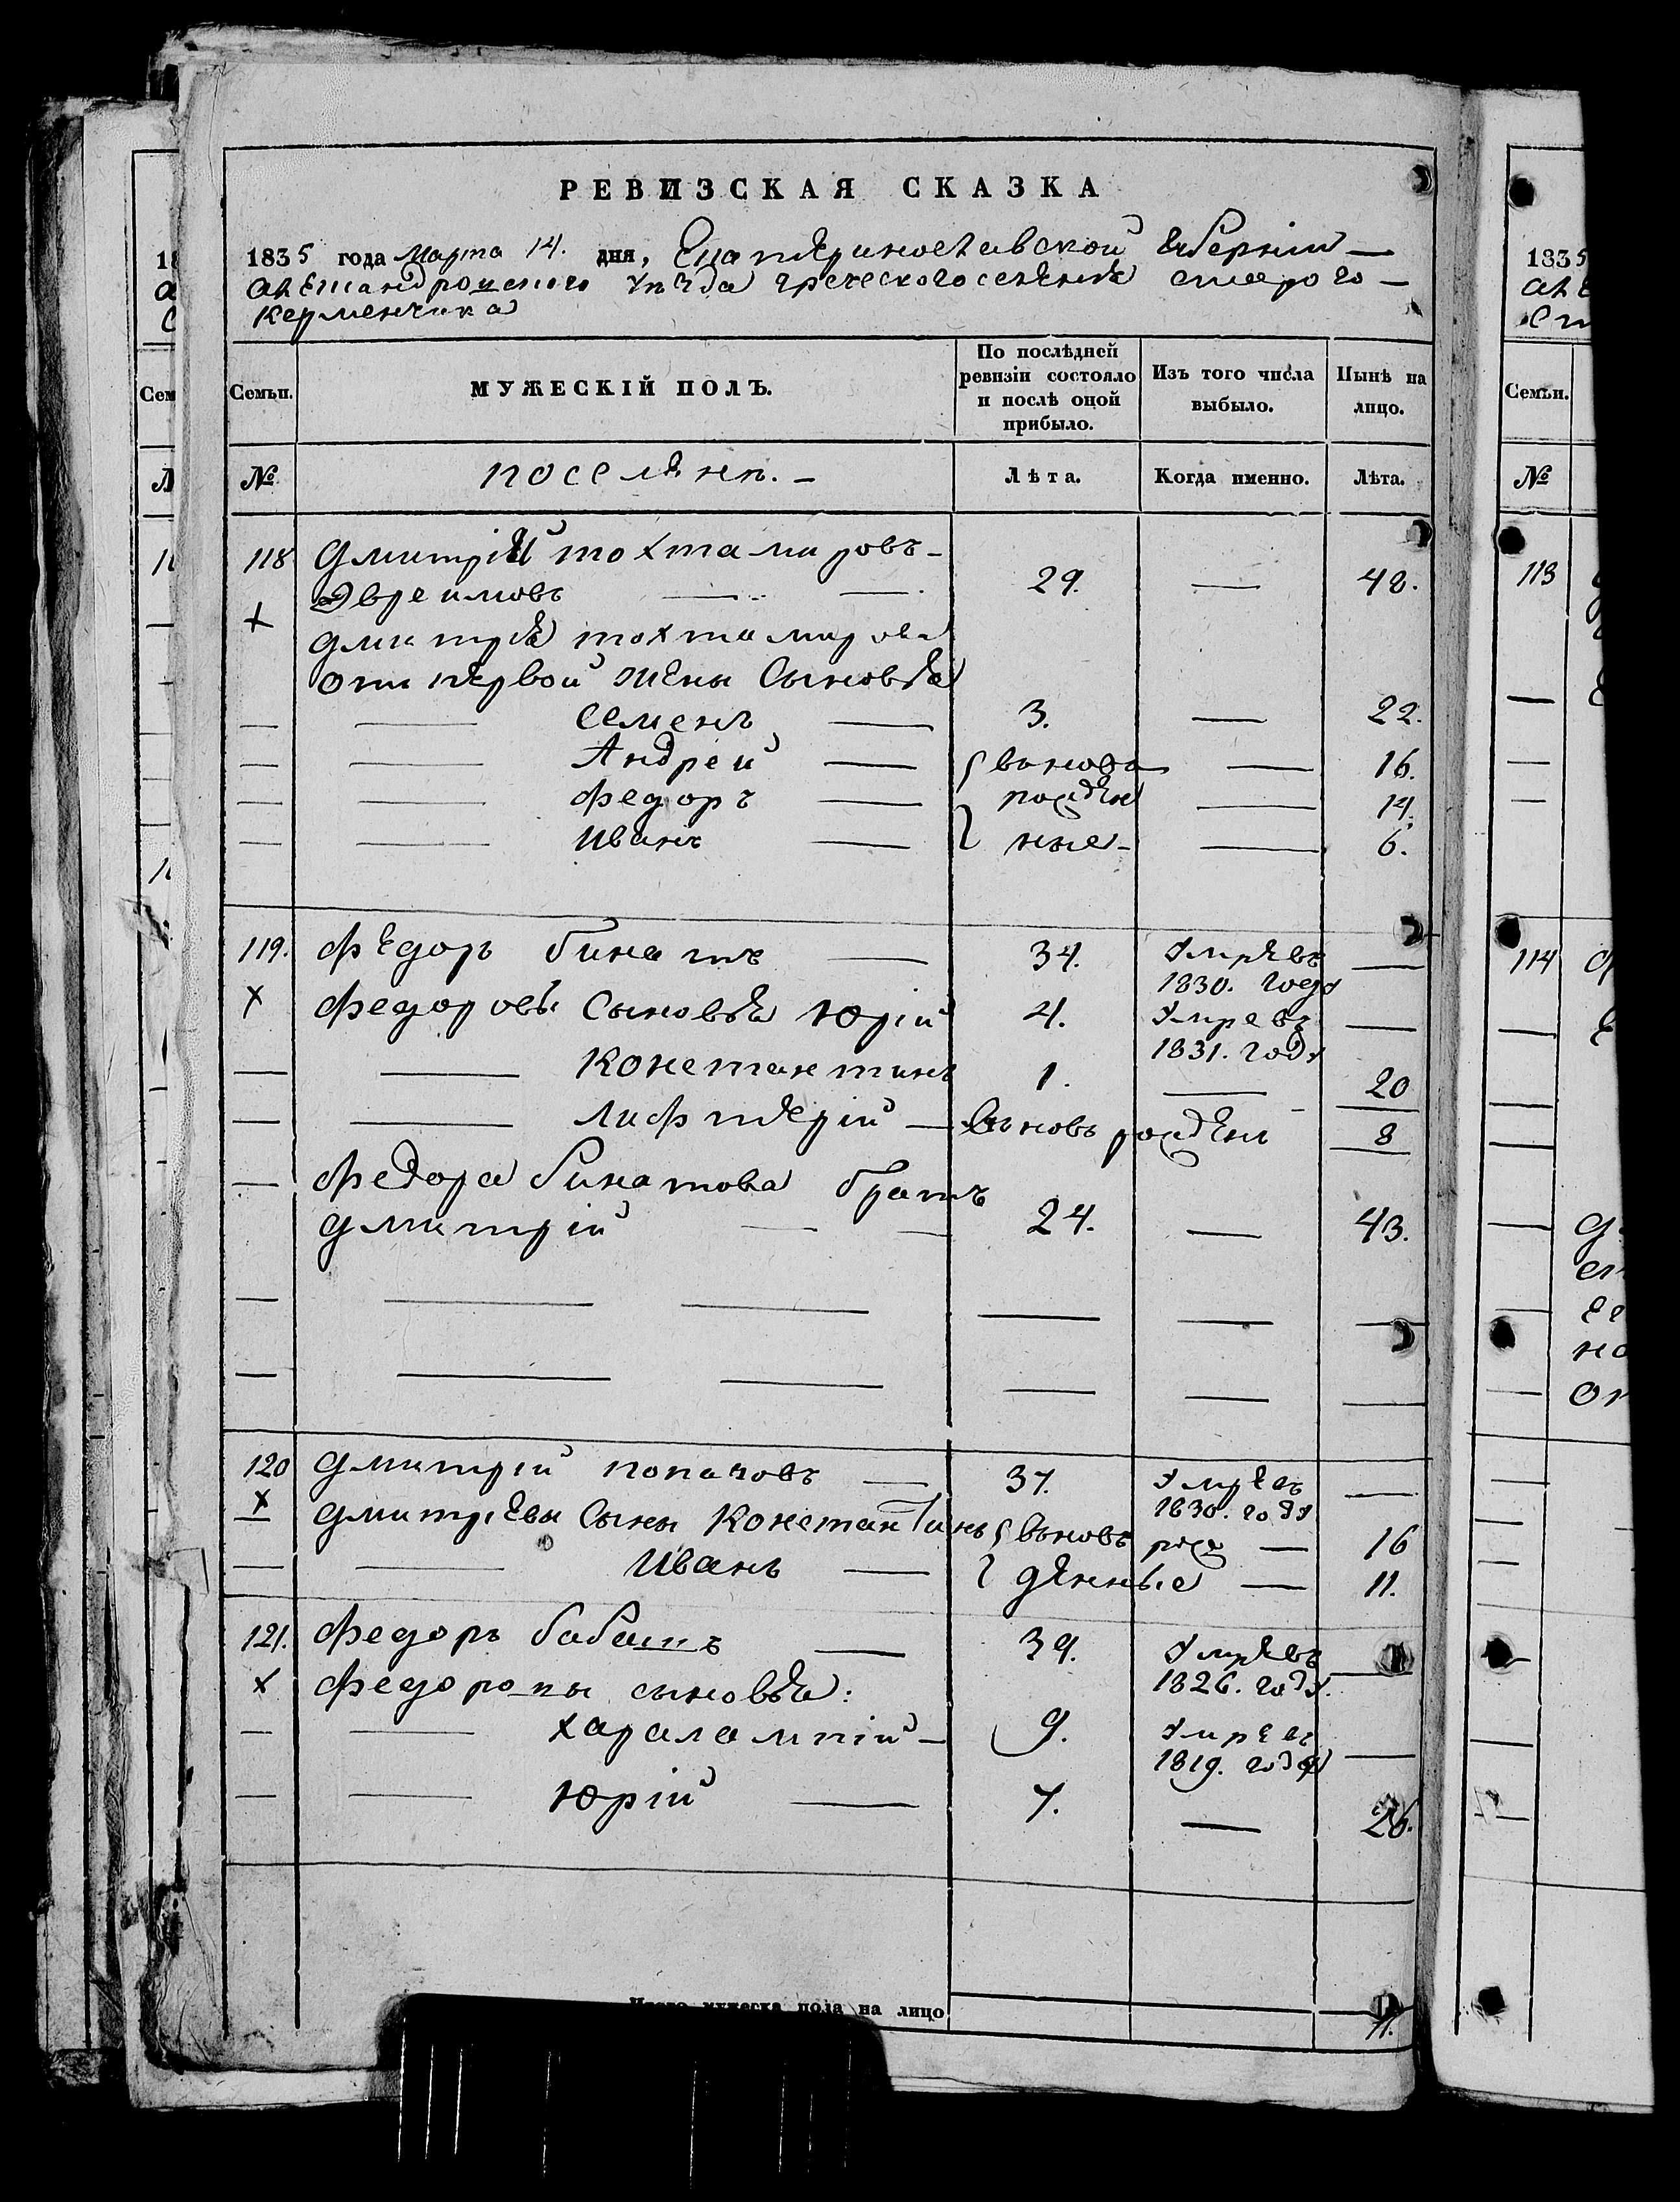 РЕВИЗСКАЯ СКАЗКА
1835 года Марта 14. дня, Екатеринославской Губернии —
Александровского уезда греческого селения старого —
Керменчика
Семьи.
МУЖЕСКІЙ ПОЛЪ.
По послѣдней ревизіи состояло и послѣ оной прибыло.
Изъ того числа выбыло.
Нынѣ на лицо.
№
поселяне. —
Лѣта.
Когда именно.
Лѣта.
118 Дмитрій тохтамировъ —
Эвреимовъ — — 29. — 48.
х
Дмитрія тохтамирова
от первой жены Сыновья
— — Семенъ — 3. — 22.
— — Андрей — вьновь — 16.
— — Федоръ — рожден — 14.
— — Иванъ — ные — — 6.
119. Федоръ бинатъ — 34. Умревъ —
1830. года
х Федоровы Сыновья Юрій 4. Умревъ —
1831. году
— — Константинъ 1. — 20
— — Лифтерій — вьновь рожден 8
— Федора бинатова братъ
Дмитрій — — 24. — 43.
— — — — — —
— — — — — —
120 Дмитрій попачовъ — 37. Умревъ —
1830. году
х Дмитріевы Сыны Константинъ вьновь рож — 16
— — Иванъ — денные — 11.
121. Федоръ бабашъ — 39. Умревъ —
1826. году.
х Федоровы сыновья:
— — Харалампій — 9. Умревъ —
1819. года
— — Юрій — 7. — 26.
мужеска пола на лицо
11.
1835
Семьи.
№
113
114